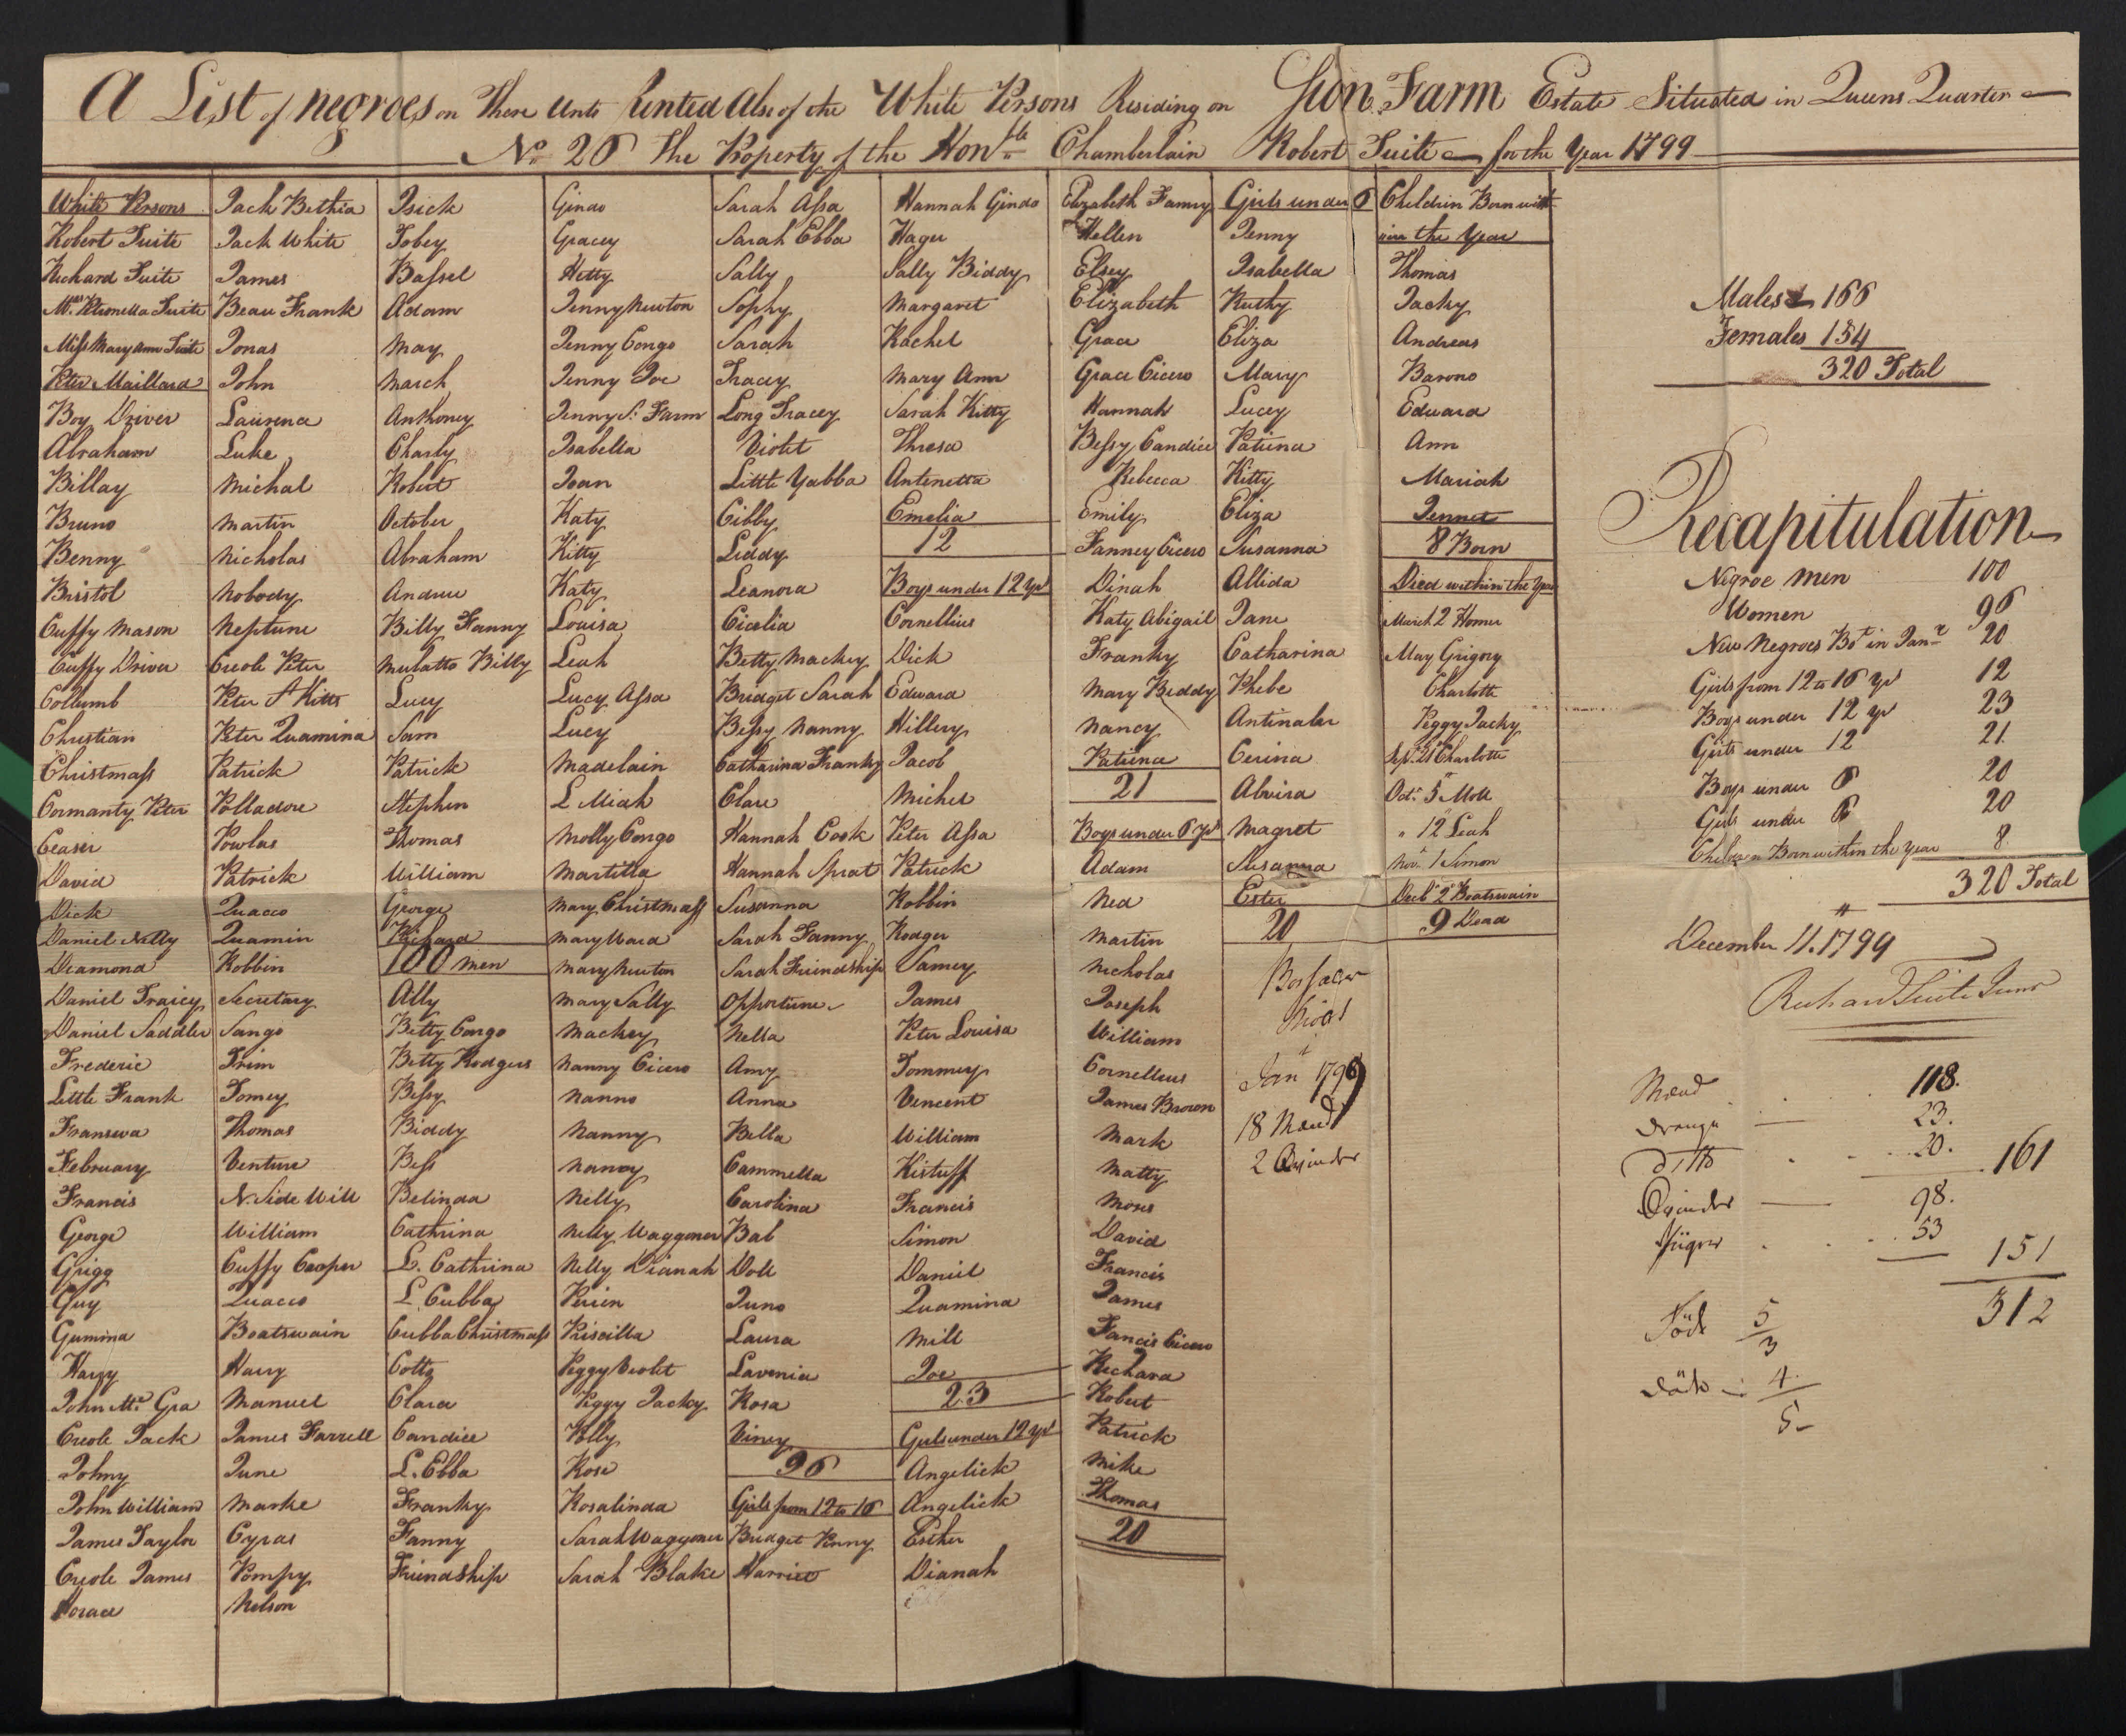 A List of negroes on There Unto Rented Also of the White Persons Residing on Sion Farm Estate Situated in Queens Quarter
No 26 The Property of the Honble Chamberlain Robert Tuite for the Year 1799
White Persons
Robert Tuite
Richard Tuite
Mrs Petronella Tuite
Miss Mary Ann Tuite
Peter Maillard
Boy Driver
Abraham
Billay
Bruno
Benny
Bristol
Cuffy Mason
Cuffy Driver
Collumb
Christian
Christmass
Cormanty Peter
Ceaser
David
Dick
Daniel Nelly
Diamond
Daniel Traicy
Daniel Saddler
Frederic
Little Frank
Franswa
February
Francis
George
Grigg
Guy
Gumina
Harry
John Mc Gra
Creole Jack
Johny
John William
James Taylor
Creole James
Horace
Jack Bethia
Jack White
James
Beau Frank
Jonas
John
Laurence
Luke
Michal
Martin
Nicholas
Nobody
Neptune
Creole Peter
Peter St Kitts
Peter Quamina
Patrick
Polladore
Powlas
Patrick
Quacco
Quamin
Robbin
Secretary
Sango
Trim
Tomey
Thomas
Venture
N. Side Will
William
Cuffy Cooper
Quacco
Boatswain
Harry
Manuel
James Farrell
June
Marke
Cyras
Pompy
Nelson
Dick
Tobey
Bassel
Adam
May
March
Anthoney
Charly
Robert
October
Abraham
Andrew
Billy Fanny
Mulatto Billy
Lucy
Sam
Patrick
Stephen
Thomas
William
George
Richard
100 men
Ally
Betty Congo
Betty Rodgers
Bessy
Biddy
Bess
Belinda
Cathrina
L. Cathrina
L. Cubba
Cubba Christmass
Cotto
Clara
Candice
L. Ebba
Franky
Fanny
Friendship
Gindo
Gracey
Hetty
Jenny Newton
Jenny Congo
Jenny Joe
Jenny S. Farm
Isabella
Joan
Katy
Kitty
Katy
Louisa
Leah
Lucy Assa
Lucy
Madelain
L Miah
Molly Congo
Martilla
Mary Christmass
Mary Ward
Mary Newton
Mary Sally
Mackey
Nanny Cicero
Nanno
Nanny
Nancy
Nelly
Nelly Waggoner
Nelly Dianah
Perien
Priscilla
Peggy Violet
Peggy Jacky
Polly
Rose
Rosalinda
Sarah Waggoner
Sarah Blake
Sarah Assa
Sarah Ebba
Sally
Sophy
Sarah
Tracey
Long Tracey
Violet
Little Yabba
Cibby
Liddy
Leanora
Cicelia
Betty Mackey
Bridget Sarah
Bessy Nanny
Catharina Franky
Clare
Hannah Cook
Hannah Sprat
Susanna
Sarah Fanny
Sarah Friendship
Opportune
Nella
Amy
Anna
Bella
Cammella
Carolina
Bab
Doll
Juno
Laura
Lavinia
Rosa
Viney
96
Girls from 12 to 16
Bridget Penny
Harriet
Hannah Gindo
Hager
Sally Biddy
Margaret
Rachel
Mary Ann
Sarah Kitty
Thresa
Antenetta
Emelia
12
Boys under 12 yrs
Cornellius
Dick
Edward
Hillery
Jacob
Michel
Peter Assa
Patrick
Robbin
Rodger
Samey
James
Peter Louisa
Tommey
Vencent
William
Kistuff
Francis
Simon
Daniel
Quamina
Mill
Joe
23
Girls under 12 yrs
Angelick
Angelick
Esther
Dianah
Elizabeth Fanny
Hellen
Elsey
Elizabeth
Grace
Grace Cicero
Hannah
Bessy Candice
Rebecca
Emily
Fanney Cicero
Dinah
Katy Abigail
Franky
Mary Biddy
Nancy
Patiena
21
Boys under 6 yrs
Adam
Ned
Martin
Nicholas
Joseph
William
Cornelleus
James Brown
Mark
Matty
Moses
David
Francis
James
Francis Cicero
Richard
Robert
Patrick
Mike
Thomas
20
Girls under 6
Jenny
Isabella
Kathy
Eliza
Mary
Lucey
Patiena
Kitty
Eliza
Susanna
Allida
Jane
Catharina
Phebe
Antinaler
Cerina
Alvira
Magret
Susanna
Ester
20
Bossaler
Jan 1799
18 Mænd
2 Qvinder
Children Born with
in the Year
Thomas
Jacky
Andreas
Barono
Edward
Ann
Mariah
Jennet
8 Born
Died within the Year
March 2 Homer
May Grigory
Charlotte
Peggy Jacky
Sepr 21 Charlotte
Octr 5 Moll
" 12 Leah
Novr 1 Simon
Decb 2 Boatswain
9 Dead
Males 166
Females 154
320 Total
Recapitulation
Negroe Men 100
Women 96
New Negroes Bot in Janr 20
Girls from 12 to 16 yrs 12
Boys under 12 yrs 23
Girls under 12 21
Boys under 6 20
Girls under 6 20
Children Born within the year 8
320 Total
December 11. 1799
Richard Tuite Junr
Mænd 118.
Drenge 23.
Ditto 20. 161
Qvinder 98.
Piger 53 151
312
Föde 5
3
Döde 4
5